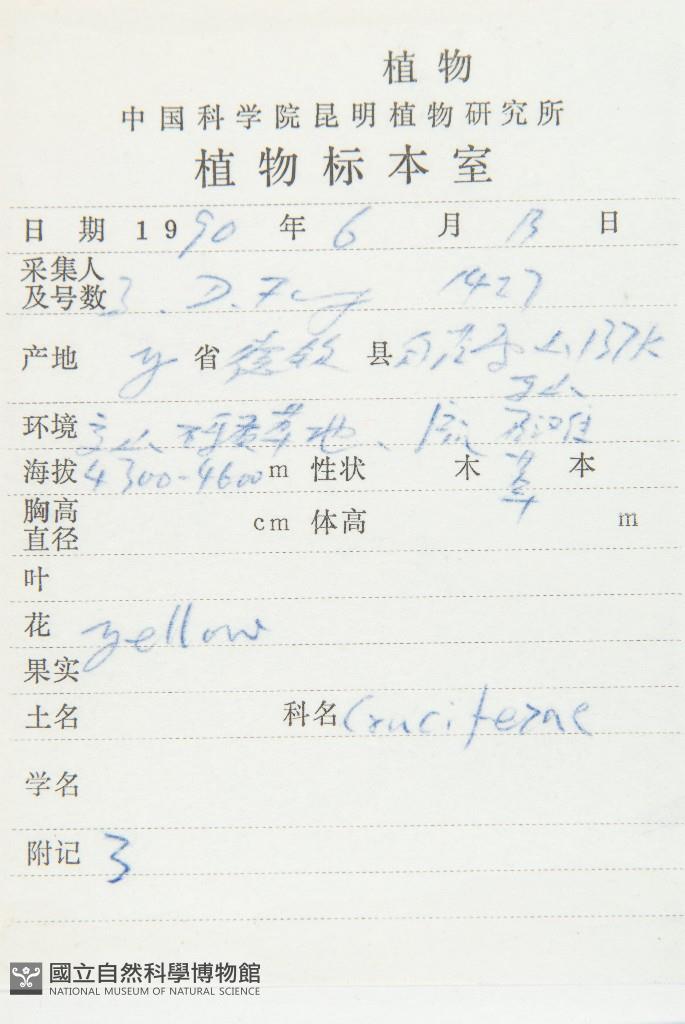 植物
中国科学院昆明植物研究所
植物标本室
日 期 1990 年 6 月 13 日
采集人
及号数 3. D. 1427
产地 y 省 德钦 县 137K
环境 草地、
海拔 4300-4600 m 性状 木 草 本
胸高
直径 cm 体高 m
叶
花 yellow
果实
土名 科名 Cruciferae
学名
附记 3
國立自然科學博物館
NATIONAL MUSEUM OF NATURAL SCIENCE